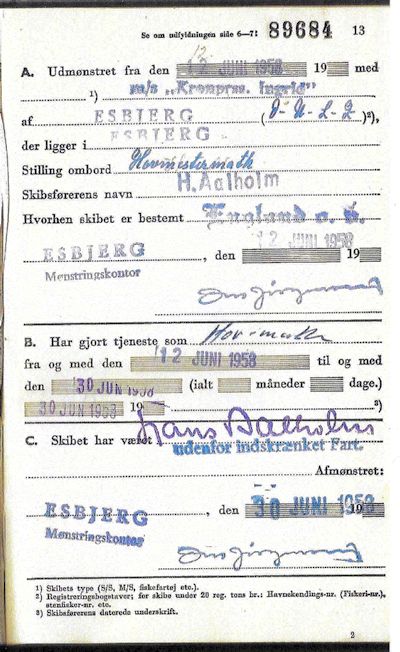 Se om udfyldningen side 6—7: 89684 13
12
A. Udmønstret fra den 12 JUNI 1958 19 med
m/s „Kronprss. Ingrid" ¹)
af ESBJERG (O-U-L-Z)²),
ESBJERG
der ligger i
Stilling ombord Hovmestermath
Skibsførerens navn H. Aalholm
Hvorhen skibet er bestemt England o. s.
12 JUNI 1958
ESBJERG, den 19
Mønstringskontor
B. Har gjort tjeneste som Hov.math
fra og med den 12 JUNI 1958 til og med
den 30 JUN 1958 (ialt måneder dage.)
30 JUN 1958 19 ³)
Hans Aalholm
C. Skibet har været udenfor indskrænket Fart.
Afmønstret:
ESBJERG, den 30 JUNI 1958 19
Mønstringskontor
1) Skibets type (S/S, M/S, fiskefartøj etc.).
2) Registreringsbogstaver; for skibe under 20 reg. tons br.: Havnekendings-nr. (Fiskeri-nr.),
stenfisker-nr. etc.
3) Skibsførerens daterede underskrift.
2